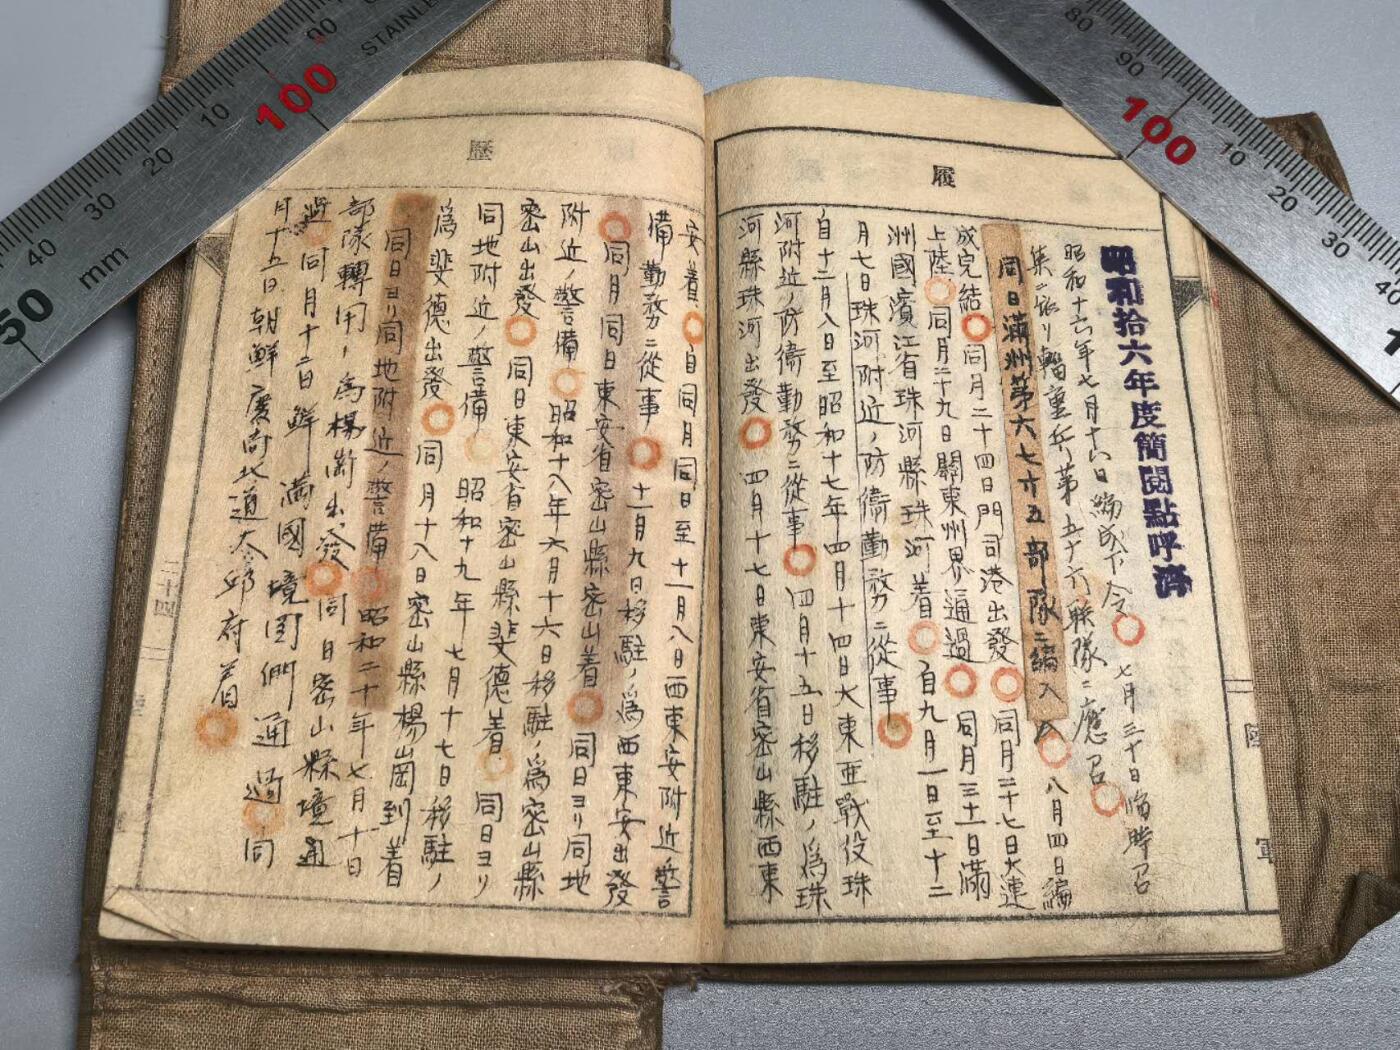 履
昭和拾六年度簡閲點呼濟
昭和十六年七月十六日編成下令 七月三十日臨時召
集ニ依リ輜重兵第五十六聯隊ニ應召
同日滿洲第六七六五部隊ニ編入 八月四日編
成完結 同月二十四日門司港出發 同月二十七日大連
上陸 同月二十九日關東州界通過 同月三十一日滿
洲國濱江省珠河縣珠河着 自九月一日至十二
月七日珠河附近ノ防衞勤務ニ從事
自十二月八日至昭和十七年四月十四日大東亜戰役珠
河附近ノ防衞勤務ニ從事 四月十五日移駐ノ爲珠
河縣珠河出發 四月十七日東安省密山縣西東
歷
安着 自同月同日至十一月八日西東安附近ノ警
備勤務ニ從事 十一月九日移駐ノ爲西東安出發
同月同日東安省密山縣密山着 同日ヨリ同地
附近ノ警備 昭和十八年六月十六日移駐ノ爲密山縣
密山出發 同日東安省密山縣斐德着 同日ヨリ
同地附近ノ警備 昭和十九年七月十七日移駐ノ
爲斐德出發 同月十八日密山縣楊崗到着
同日ヨリ同地附近ノ警備 昭和二十年七月十日
部隊轉用ノ爲楊崗出發 同日密山縣境通
過 同月十二日鮮滿國境圖們通過 同
月十五日朝鮮慶尚北道大邱府着
二十四
陸
軍
STAINLE
mm
10
20
30
40
50
80
90
100
10
20
30
40
90
100